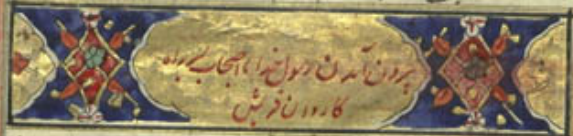 بیرون آمدن رسول خدا با اصحاب بر راه
کاروان قریش